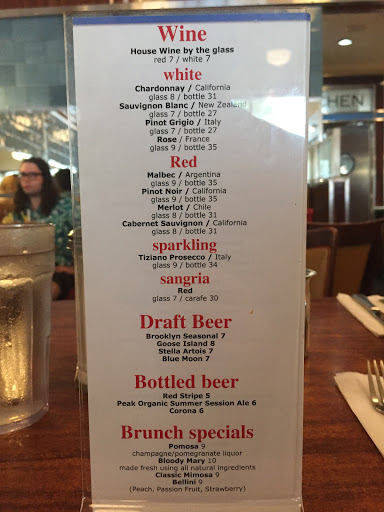 Wine
House Wine by the glass
red 7 / white 7
white
Chardonnay / California
glass 8 / bottle 31
Sauvignon Blanc / New Zealand
glass 7 / bottle 27
Pinot Grigio / Italy
glass 7 / bottle 27
Rose / France
glass 9 / bottle 35
Red
Malbec / Argentina
glass 9 / bottle 35
Pinot Noir / California
glass 9 / bottle 35
Merlot / Chile
glass 8 / bottle 31
Cabernet Sauvignon / California
glass 8 / bottle 31
sparkling
Tiziano Prosecco / Italy
glass 9 / bottle 34
sangria
Red
glass 7 / carafe 30
Draft Beer
Brooklyn Seasonal 7
Goose Island 8
Stella Artois 7
Blue Moon 7
Bottled beer
Red Stripe 5
Peak Organic Summer Session Ale 6
Corona 6
Brunch specials
Pomosa 9
champagne/pomegranate liquor
Bloody Mary 10
made fresh using all natural ingredients
Classic Mimosa 9
Bellini 9
(Peach, Passion Fruit, Strawberry)
CHEN